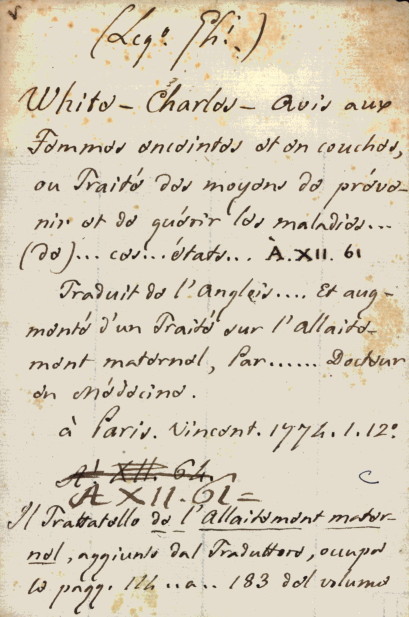 (Leg.º Ghi.)
White - Charles - Avis aux
Femmes enceintes et en couches,
ou Traité des moyens de préve-
nir et de guérir les maladies...
(de)... ces... états... A.XII.61
Traduit de l'Angleis.... Et aug-
menté d'un Traité sur l'allaite-
ment maternel, Par...... Docteur
en Médecine.
à Paris. Vincent. 1774. 1. 12º
A XII. 64
A XII. 61 =
Il Trattatello de l'Allaitement mater-
nel, aggiunto dal Traduttore, occupa
le pagg. 124..a..183 del volume